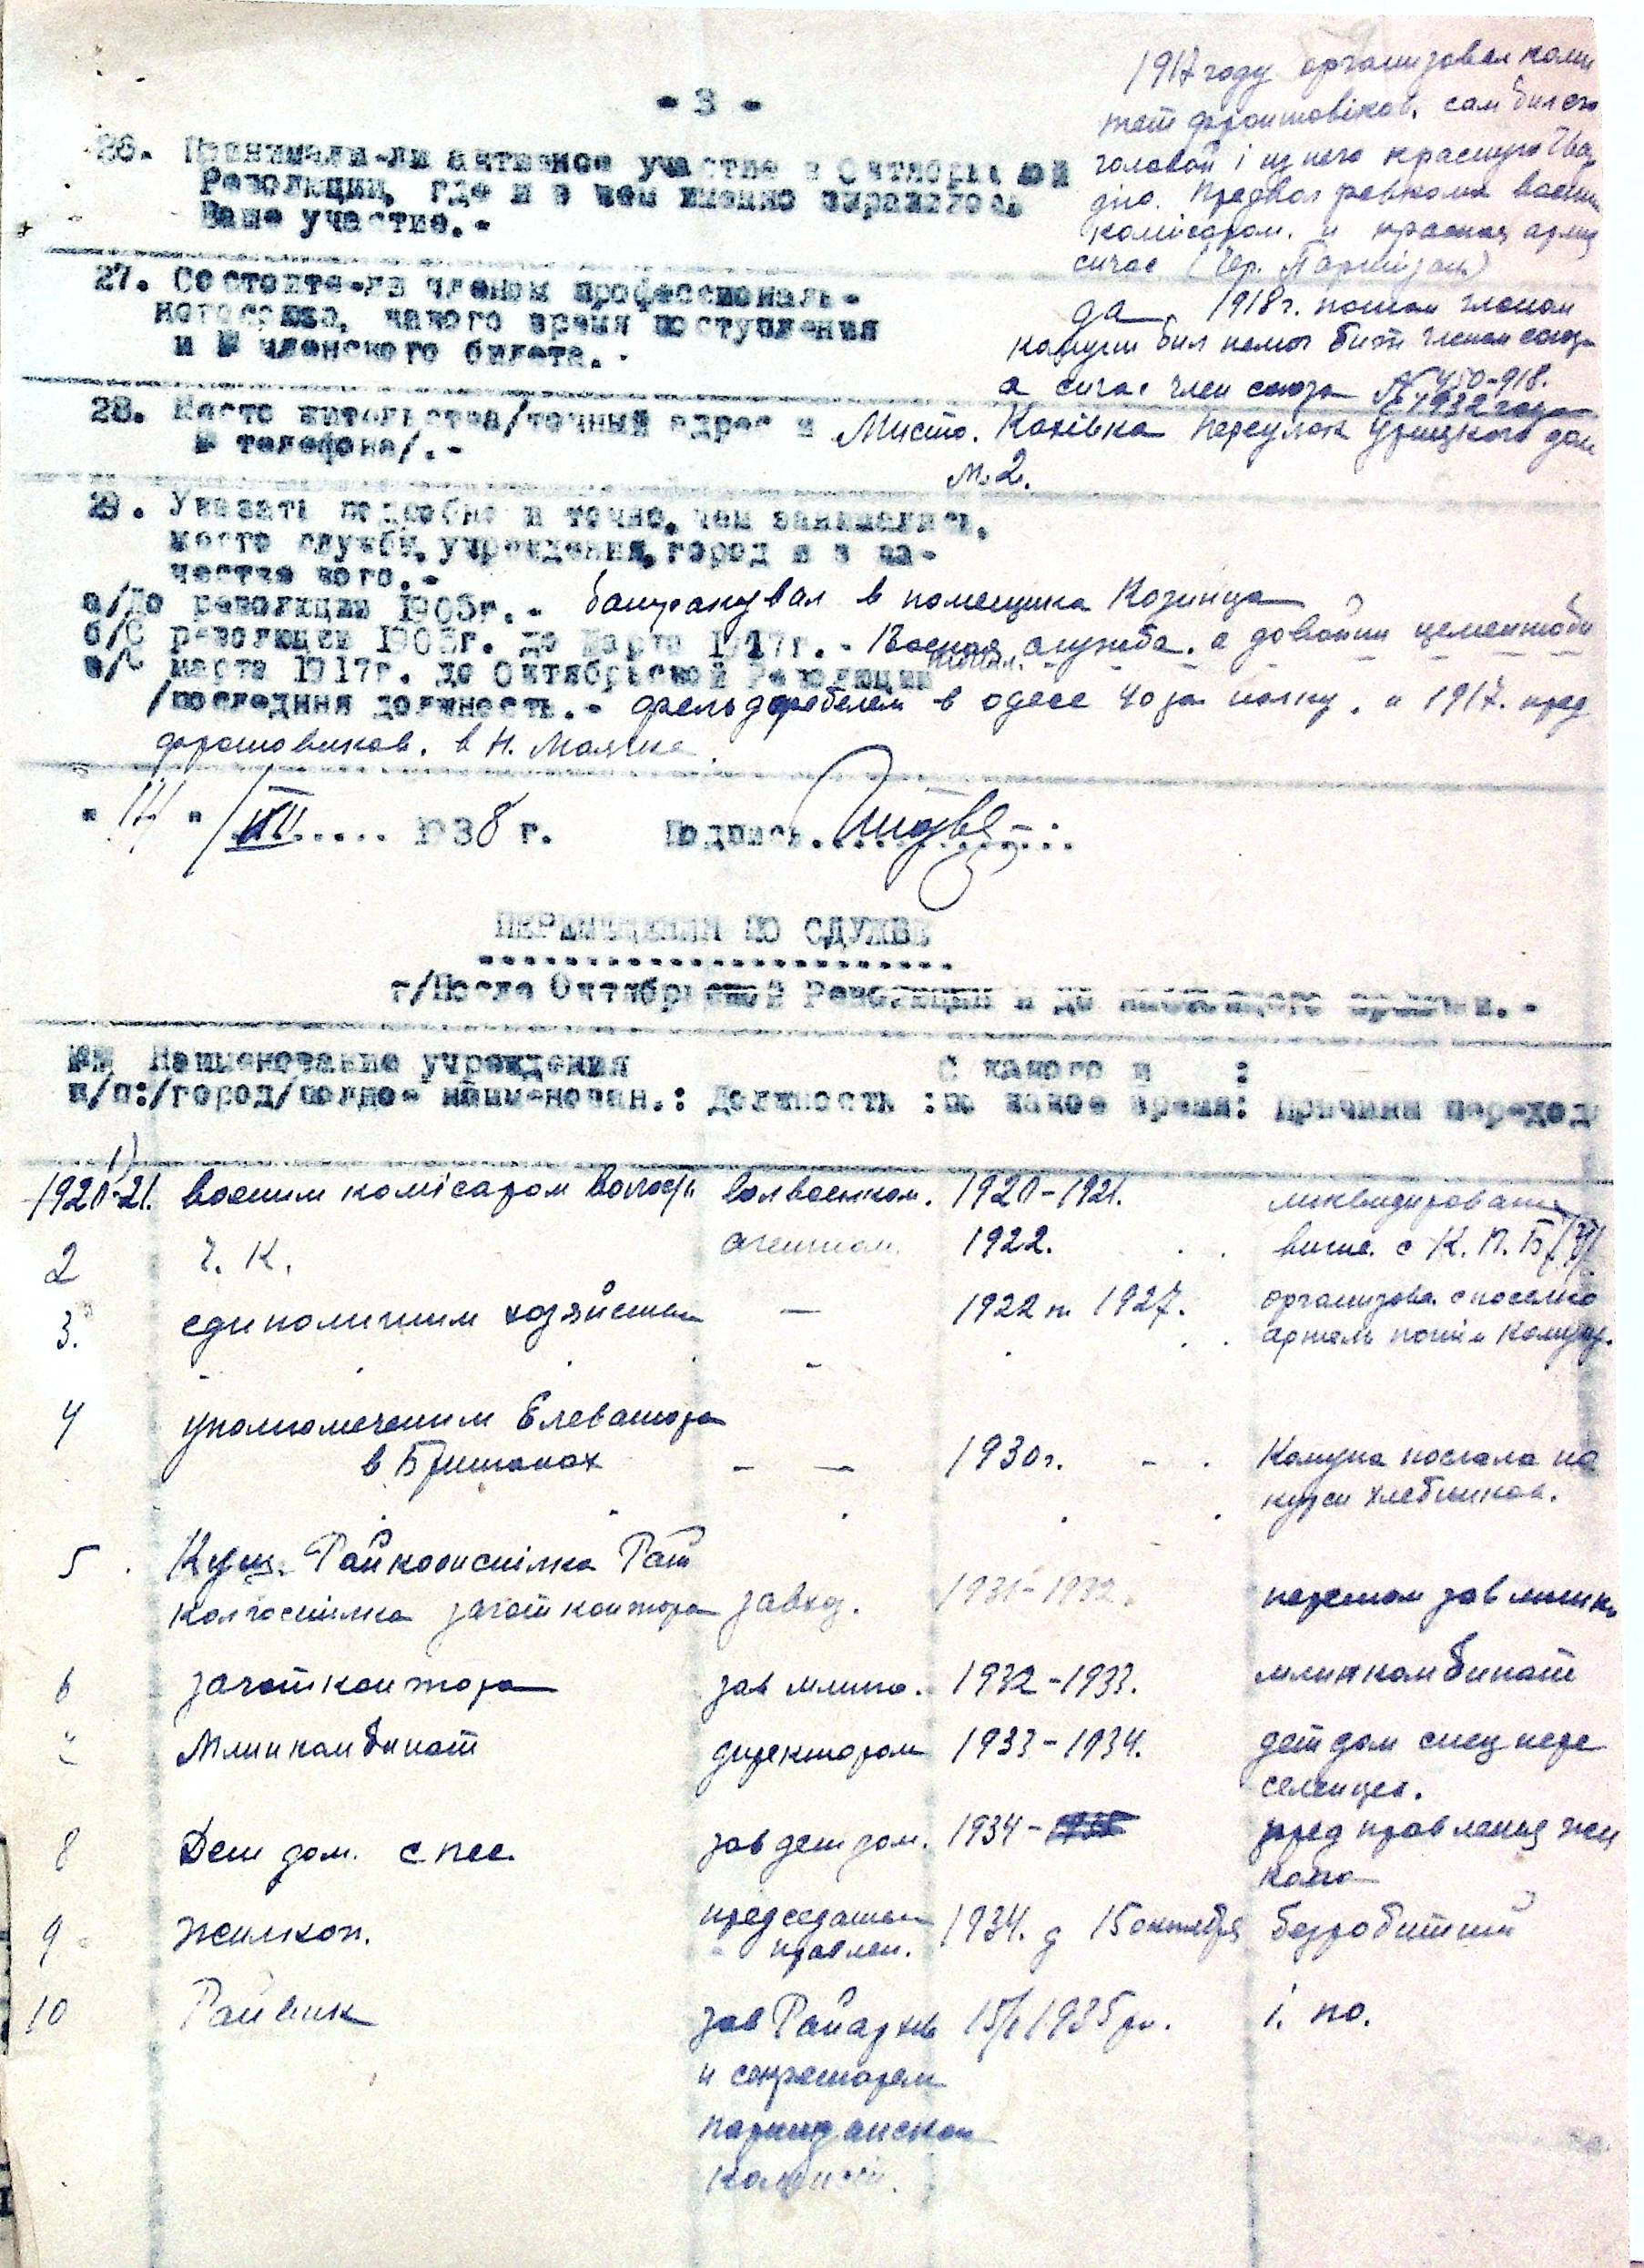 - 3 -
1917 году организовал коми
тет фронтовіков, сам бил его
головой і из него красную гва
дию. Предвол ревкома воени
комісаром. и красная армия
сичас (Чер. Партизан)
26. Принимали-ли активное участие в Октябрьской
Революции, где и в чем именно выражалось
Ваше участие.-
27. Состоите-ли членом профессиональ-
ного союза, какого время поступления
и № членского билета.-
да 1918 г. потом членом
комуни бил немог бить членом союза
а сичас член союза № 450-918.
с 1932 года
28. Место жительства/точный адрес и
№ телефона/.-
Мисто. Кахівка переулок Урицкого дом
№ 2.
29. Указать подробно и точно, чем занимались,
место службы, учреждения, город и в ка-
честве кого.-
а/До революции 1905г.- батракувал в помещика Козинца
б/С революции 1905г. до марта 1917г.- Военая служба. а довойни
в/С марта 1917г. до Октябрьской Революции
/последняя должность.- фельдфебелем в одесе 40го полку. и 1917. пред
фронтовиков. в Н. Маячке.
"14" /VII..... 1938 г. Подпись
ПЕРЕМЕЩЕНИЯ ПО СЛУЖБЕ
г/После Октябрьской Революции и до настоящего времени.-
№№ Наименование учреждения С какого и :
п/п:/город/полное наименован.: Должность :по какое время: Причины переход
1)
1920-21. военим комісаром волости волвоенком. 1920-1921. ликвидировани
2 Ч. К. агентом. 1922. више. с К. П. Б/У/
3. единоличним хозяйством — 1922 п 1927. организова. споселко
артель потім комуну.
4 уполномоченим Елеватора
в Британах — — 1930 г. - Комуна послала на
курси хлебников.
5 Кущ. Райкопспілка Рай
колгоспілка заготконтора завхоз. 1931-1932. перешол зав млином
6 заготконтора зав млина. 1932-1933. млинкомбинат
" Млинкомбинат директором 1933-1934. детдом спец пере
селенцев.
8 Дет дом. спец. зав детдом. 1934- пред правления жил
копа
9 жилкоп. председатель
правлен. 1934. д 15 октября безробитний
10 Райвик зав Райархів
и секретарем
партизанскои
комисії. 15/ 1935 р. і. по.